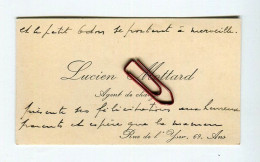 et le petit Odon se portent à merveille.
Lucien Mottard
Agent de change
présente ses félicitations aux heureux
parents et espère que la maman
Rue de l'Yser, 69, Ans